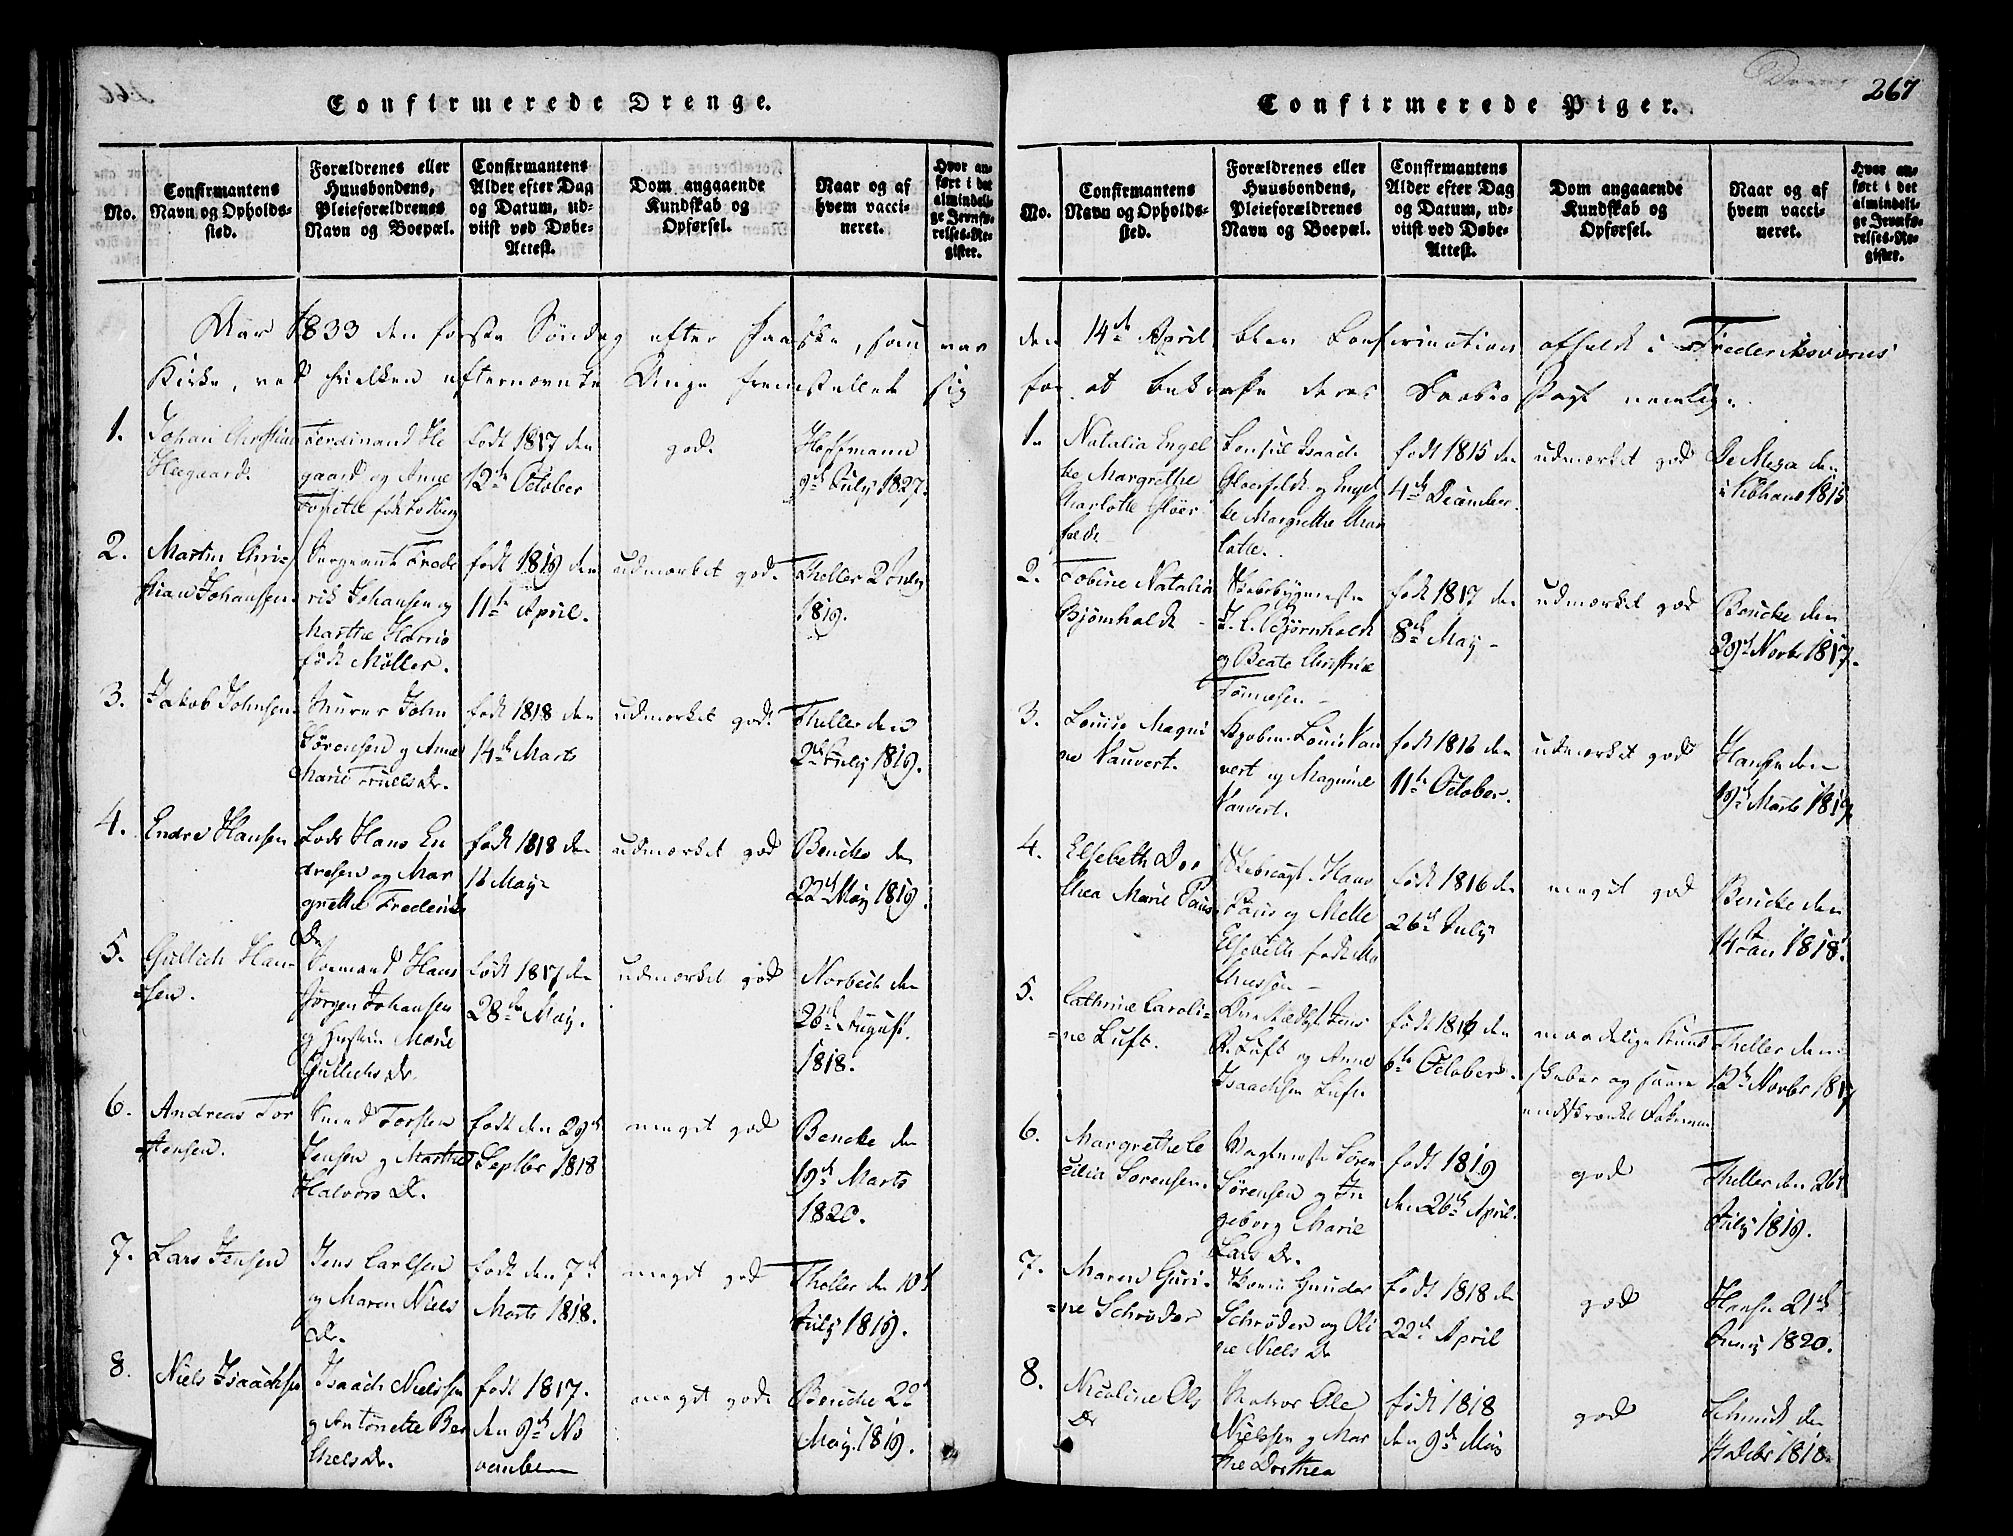 Confirmerede Drenge.
No.
Confirmantens
Navn og Opholds-
sted.
Forældrenes eller
Huusbondens,
Pleieforældrenes
Navn og Boepæl.
Confirmantens
Alder efter Dag
og Datum, ud-
viist ved Døbe-
Attest.
Dom angaaende
Kundskab og
Opførsel.
Naar og af
hvem vacci-
neret.
Hvor an-
ført i det
almindeli-
ge Jevnfø-
relses-Re-
gister.
Aar 1833 den første Søndag efter Paaske, som var
Kirke, ved hvilken efternævnte Unge fremstillede sig
1.
Johan Christian
Heegaard.
Ferdinand He
gaard og Anne
født
født 1817 den
12te October
god.
Hoffmann
9de July 1827.
2.
Martin Chri-
stian Johansen.
Sergeant Frede
rik Johansen og
Marthe
født Møller.
født 1819 den
11te April.
udmærket god.
Theller 2 July
1819.
3.
Jakob Johnsen.
Murer John
Sørensen og Anne
Marie Truels Dr.
født 1818 den
14de Marts
udmærket god.
Theller den
2de July 1819.
4.
Endre Hansen
Lods Hans En
dresen og Mar
grethe Frederiks
Dr.
født 1818 den
16 May
udmærket god
Bencke den
22de May 1819.
5.
Gullich Han-
sen.
Hans
Jørgen Johansen
og Hustru Marie
Gullichs Dr.
født 1817 den
28de May.
udmærket god
Norbech den
26de August
1818.
6.
Andreas Tor
stensen.
Smed Torsten
Jensen og Marthe
Halvors Dr.
født den 29de
Septbr 1818
meget god
Bencke den
19de Marts
1820.
7.
Lars Jensen
Jens Carlsen
og Maren Niels
Dr.
født den 7de
Marts 1818.
meget god
Theller den 10de
July 1819.
8.
Niels Isaachsen
Isaach Nielssen
og Antonette Ber
thels Dr.
født 1817.
den 9de No
vember
meget god
Bencke 22de
May 1819.
267
Confirmerede Piger.
No.
Confirmantens
Navn og Opholds-
sted.
Forældrenes eller
Huusbondens,
Pleieforældrenes
Navn og Boepæl.
Confirmantens
Alder efter Dag
og Datum, ud-
viist ved Døbe-
Attest.
Dom angaaende
Kundskab og
Opførsel.
Naar og af
hvem vacci-
neret.
Hvor an-
ført i det
almindeli-
ge Jevnfø-
relses-Re-
gister.
den 14de April blev Confirmation afholdt i Frederiksværns
for at bekræfte deres Daabs Pagt nemlig.
1.
Natalia Engel
ke Margrethe
Charlotte Gløer
felt
Consul Isaach
Gloerfeldt og Engel
ke Margrethe Char
lotte.
født 1815 den
4de December.
udmærket god
De Meza den
i Kbhavn 1815
2.
Tobine Natalia
Bjørnholdt
Skibsbygmester
Bjørnholdt
og Beate Christine
Tønnesen
født 1817 den
8de May
udmærket god
Bencke den
29de Novbr 1817.
3.
Louise Magni
ne Vauvert.
Kjøbm. Louis Vau
vert og Magnine
Vauvert.
født 1816 den
11te October.
udmærket god
Hansen den
19de Marts 1819.
4.
Elsebeth Do
thea Marie Paus
Hans
Paus og Mette
Elsebeth født Ma
thiessen
født 1816 den
26de July
meget god
Bencke den
14de Jan 1818.
5.
Cathrine Caroli-
ne Luft.
Jens
P. Luft og Anne
Isaachsen Luft.
født 1816 den
6te October.
maadelige Kund
skaber og
Theller den
12te Novbr 1817
6.
Margrethe Ce
cilia Sørensen.
Vagtmester Søren
Sørensen og In
geborg Marie
Lars Dr.
født 1819
den 26de April.
god
Theller den 26de
July 1819.
7.
Maren Guri-
ne Schrøder
Gunder
Schrøder og Oli
ne Niels Dr
født 1818 den
22de April
god
Hansen 21de
Juny 1820.
8.
Nicoline Ols
Dr
Matros Ole
Nielssen og Mar
the Dorthea
født 1818
den 9de May
god
Schmidt den